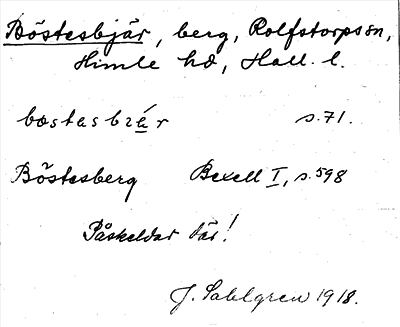 Böstesbjär, berg, Rolfstorps sn,
Himle hd, Hall. l.
bostasbrár s. 71.
Böstesberg Bexell I, s. 598
Påskeldar där!
J. Sahlgren 1918.